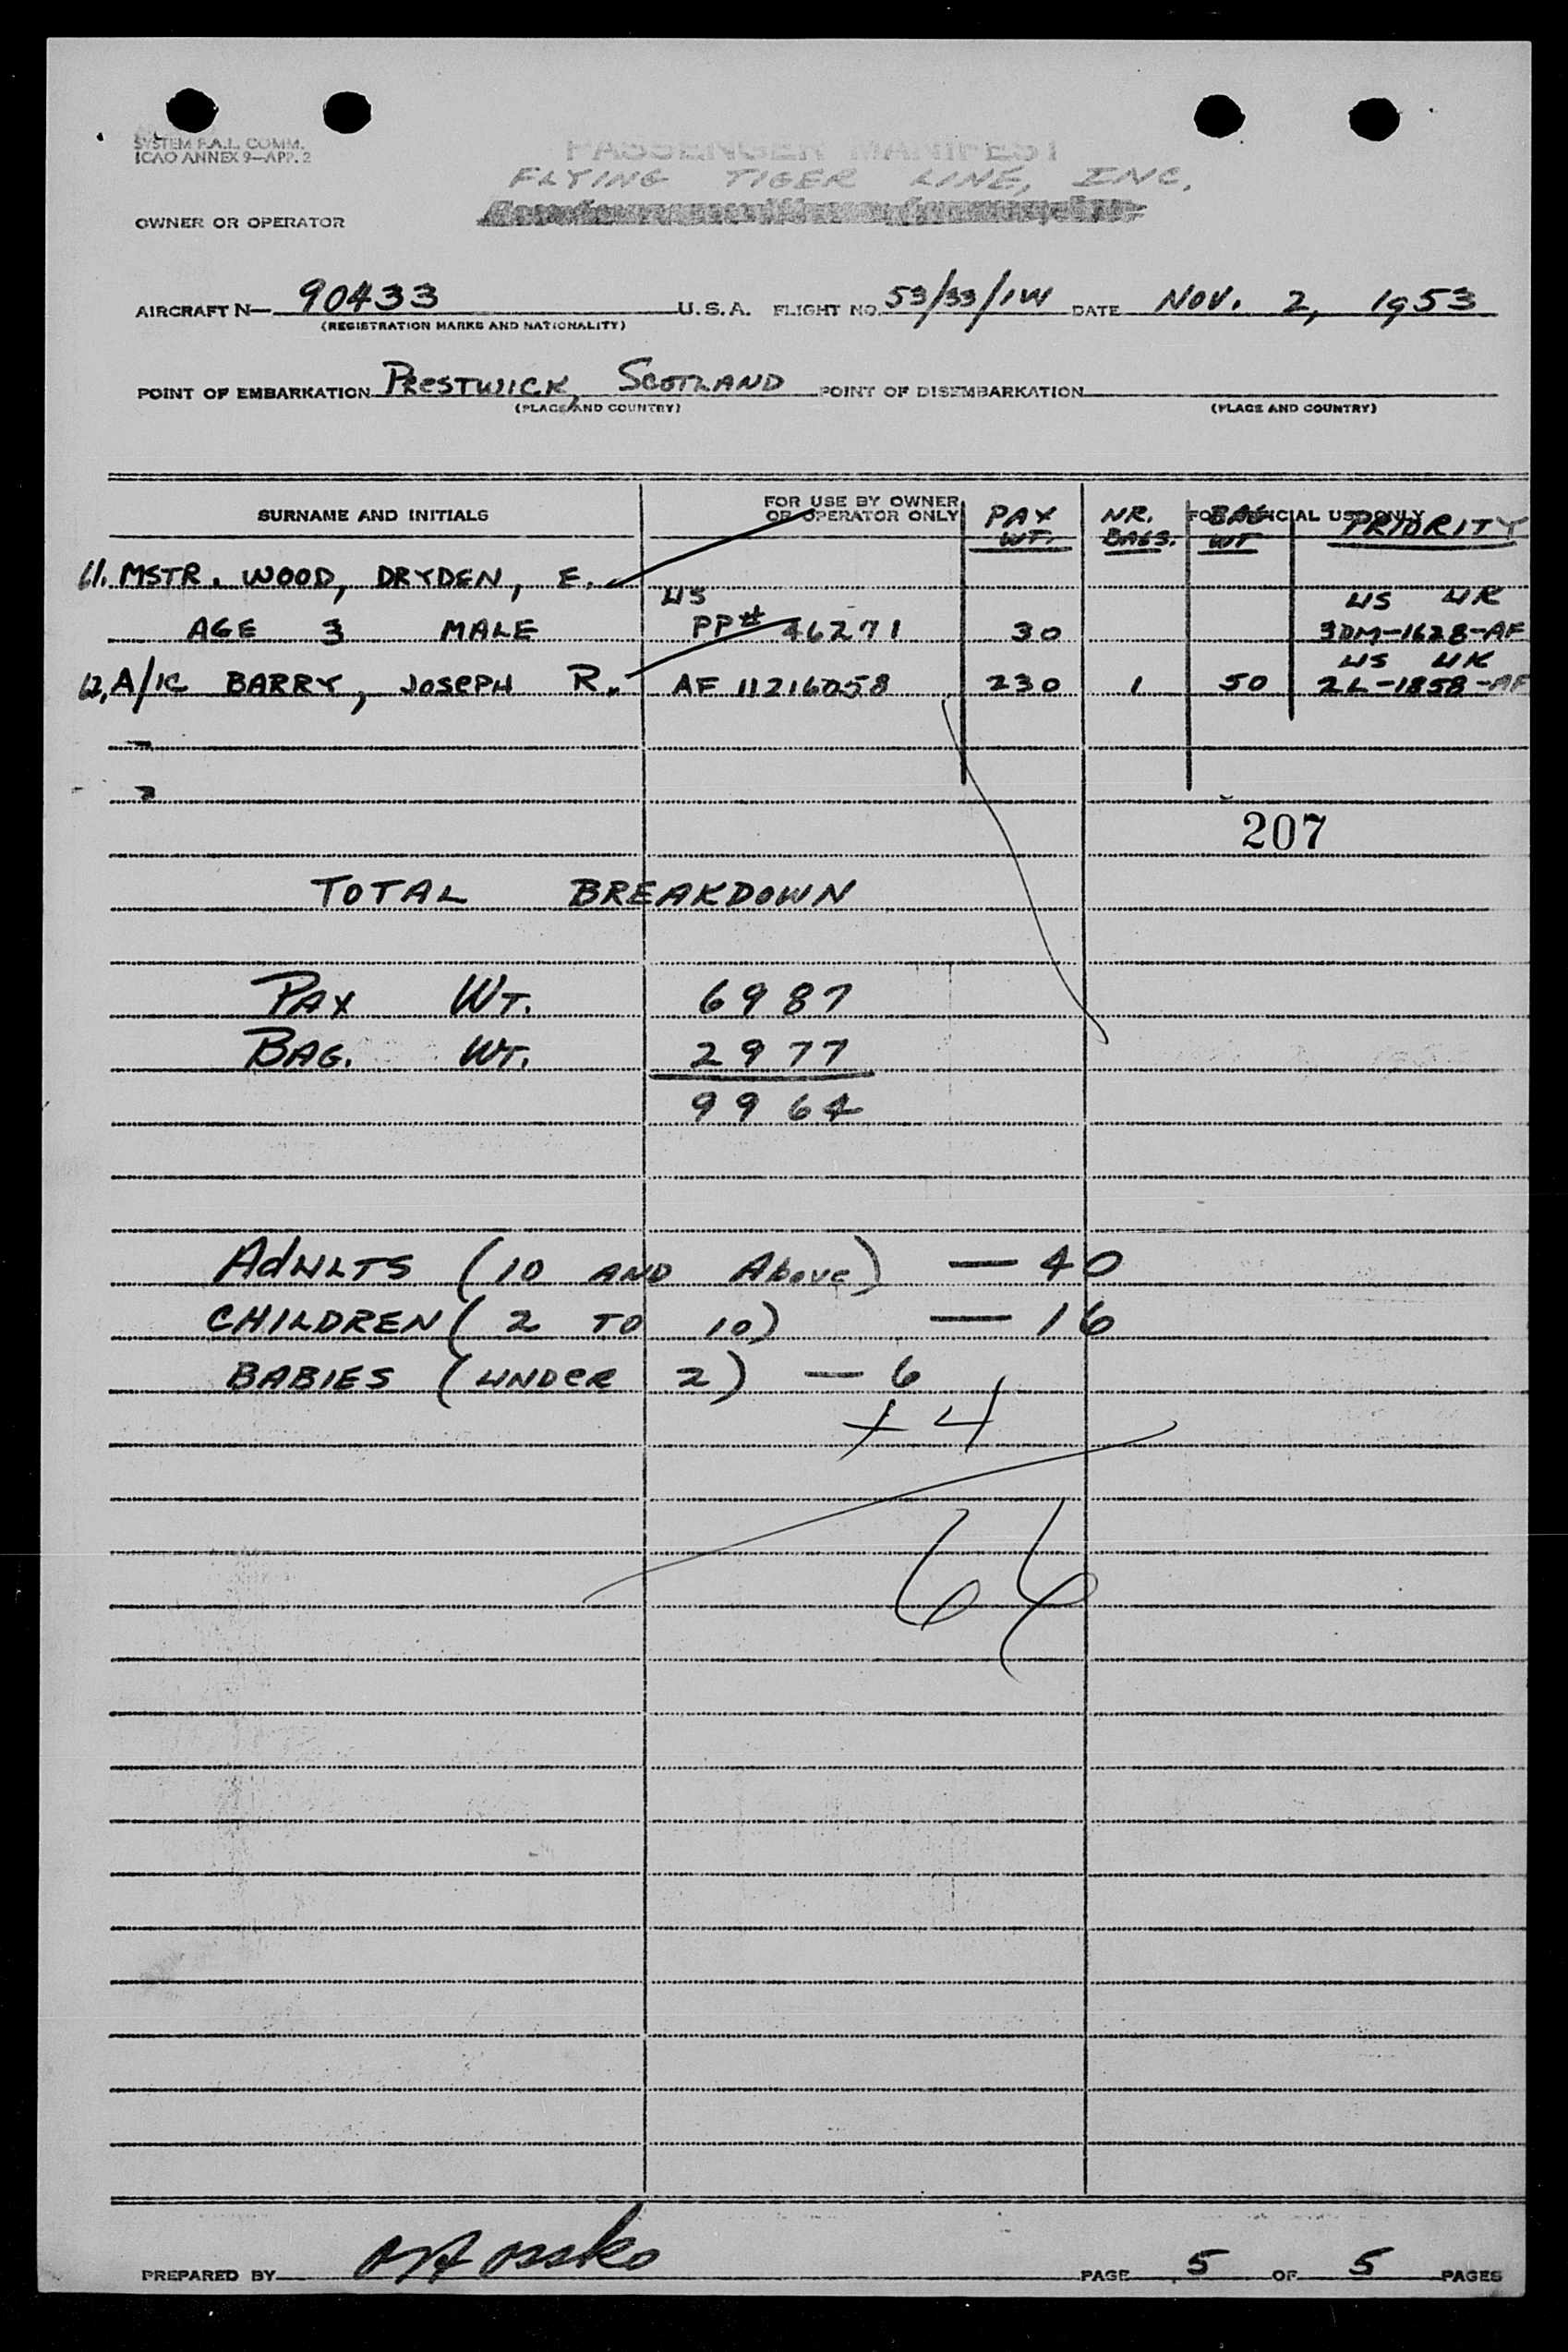 SYSTEM F.A.L. COMM.
ICAO ANNEX 9—APP. 2
PASSENGER MANIFEST
FLYING TIGER LINE, INC.
OWNER OR OPERATOR
AIRCRAFT N— 90433 U.S.A. FLIGHT NO. 53/33/1W DATE NOV. 2, 1953
(REGISTRATION MARKS AND NATIONALITY)
POINT OF EMBARKATION PRESTWICK, SCOTLAND POINT OF DISEMBARKATION
(PLACE AND COUNTRY) (PLACE AND COUNTRY)
SURNAME AND INITIALS FOR USE BY OWNER OR OPERATOR ONLY PAX WT. NR. BAGS. FOR OFFICIAL USE ONLY BAG WT PRIORITY
61. MSTR. WOOD, DRYDEN, E.
US US UK
AGE 3 MALE PP# 46271 30 3DM-1628-AF
US UK
62. A/1C BARRY, JOSEPH R. AF 11216058 230 1 50 2L-1858-AF
207
TOTAL BREAKDOWN
PAX WT. 6987
BAG. WT. 2977
9964
ADULTS (10 AND Above) — 40
CHILDREN (2 TO 10) — 16
BABIES (UNDER 2) — 6
+ 4
66
PREPARED BY PAGE 5 OF 5 PAGES